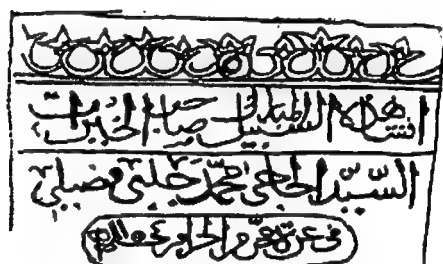 انشا هذا السبيل المبارك صاحب الخيرات
السيد الحاج محمد جلبي
في غرة محرم الحرام